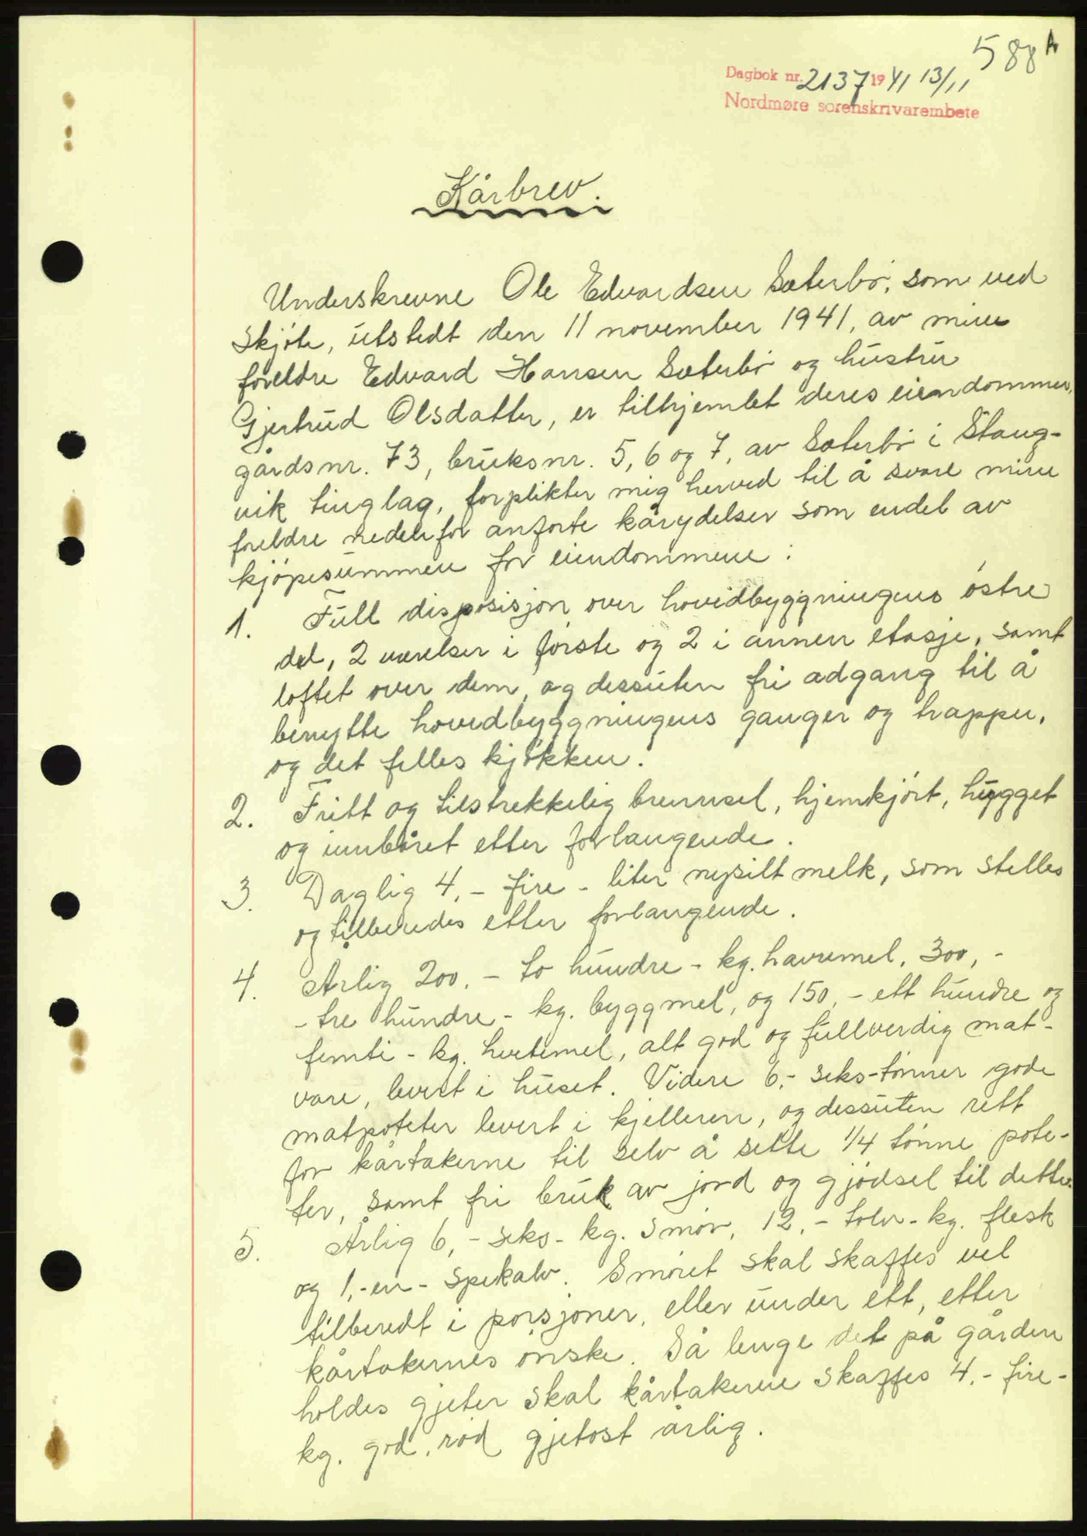 588 A
Dagbok nr. 2137 1941 13/11
Nordmøre sorenskrivarembete
Kårbrev.
Underskrevne Ole Edvardsen Sæterbø, som ved
skjøte, utstedt den 11 november 1941, av mine
foreldre Edvard Hansen Sæterbø og hustru
Gjertrud Olsdatter, er tilhjemlet deres eiendommer,
gårdsnr. 73, bruksnr. 5, 6 og 7, av Sæterbø i Stang-
vik tinglag, forplikter mig herved til å svare mine
foreldre nedenfor anførte kårydelser som endel av
kjøpesummen for eiendommene:
1. Full disposisjon over hovedbyggningens østre
del, 2 værelser i første og 2 i annen etasje, samt
loftet over dem, og dessuten fri adgang til å
benytte hovedbyggningens ganger og trapper,
og det felles kjøkken.
2. Fritt og tilstrekkelig brensel, hjemkjørt, hugget
og innbåret etter forlangende.
3. Daglig 4, - fire - liter nysilt melk, som stelles
og tilberedes etter forlangende.
4. Årlig 200, - to hundre - kg. havremel, 300, -
- tre hundre - kg. byggmel, og 150, - ett hundre og
femti - kg. hvetemel, alt god og fullverdig mat-
vare, levert i huset. Videre 6, - seks - tønner gode
matpoteter levert i kjelleren, og dessuten rett
for kårtakerne til selv å sette 1/4 tønne pote-
ter, samt fri bruk av jord og gjødsel til dette.
5. Årlig 6, - seks - kg. smør, 12, - tolv - kg. flesk
og 1, - en - spekalv. Smøret skal skaffes vel
tilberedt i porsjoner, eller under ett, etter
kårtakernes ønske. Så lenge det på gården
holdes gjeter skal kårtakerne skaffes 4, - fire -
kg. god, rød gjetost årlig.